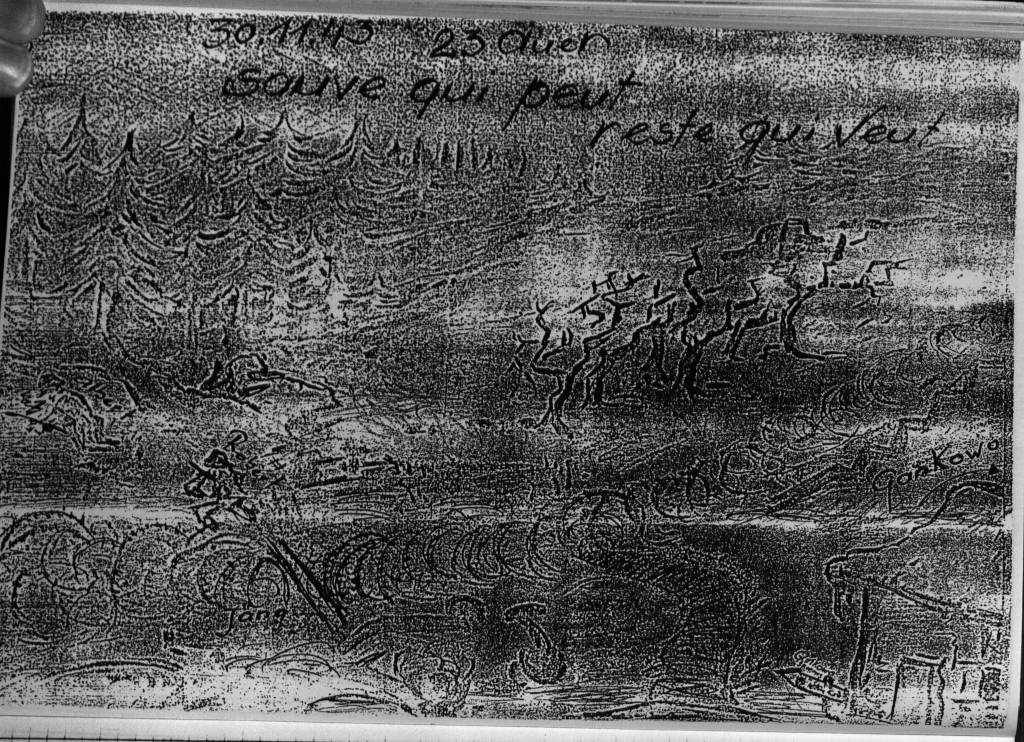 30.11.43 23 Quer
Sauve qui peut
reste qui veut
Gorkowo
Jäng